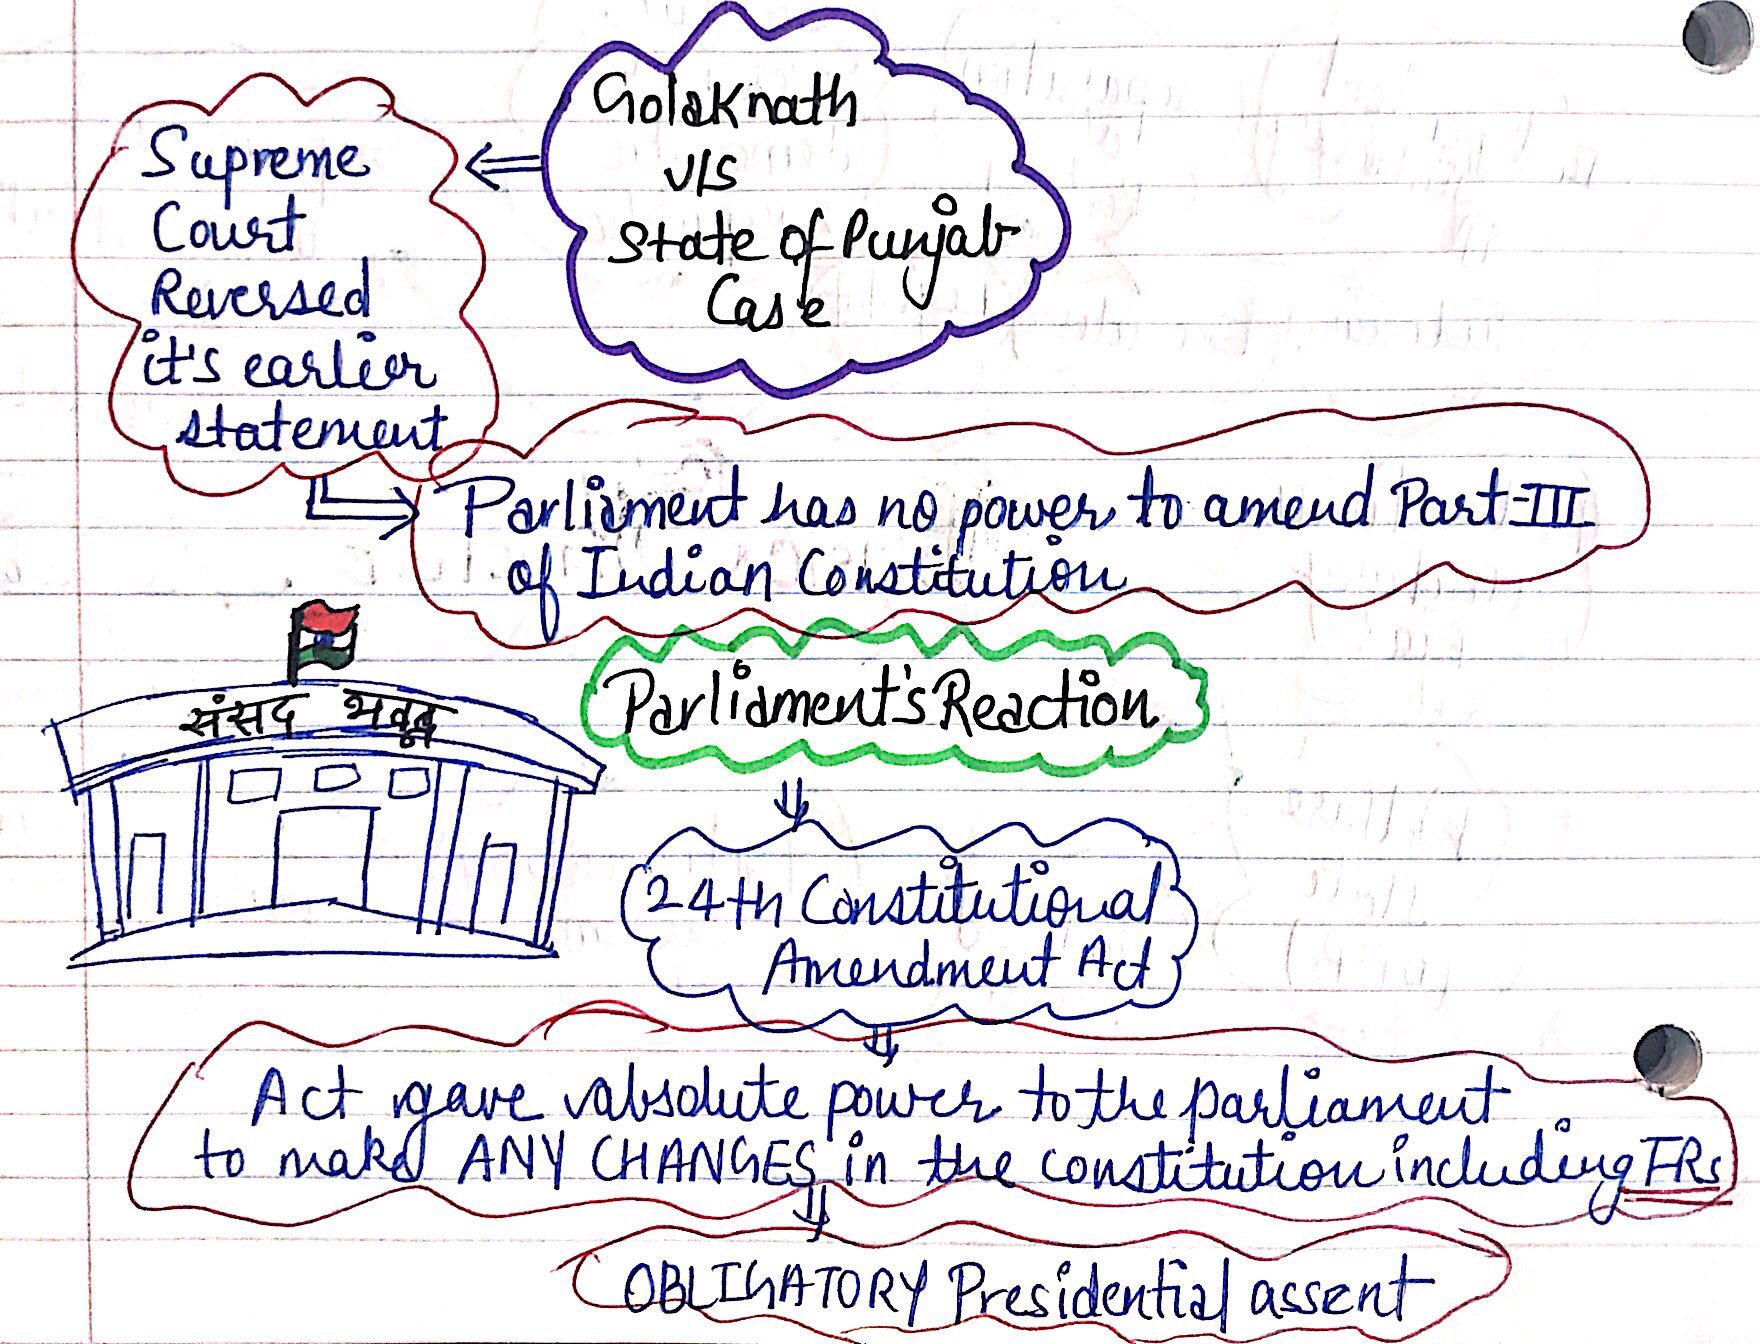 Golaknath
v/s
State of Punjab
Case
Supreme
Court
Reversed
it's earlier
statement
Parliament has no power to amend Part-III
of Indian Constitution
संसद भवन
Parliament's Reaction
24th Constitutional
Amendment Act
Act gave absolute power to the parliament
to make ANY CHANGES in the constitution including FRs
OBLIGATORY Presidential assent